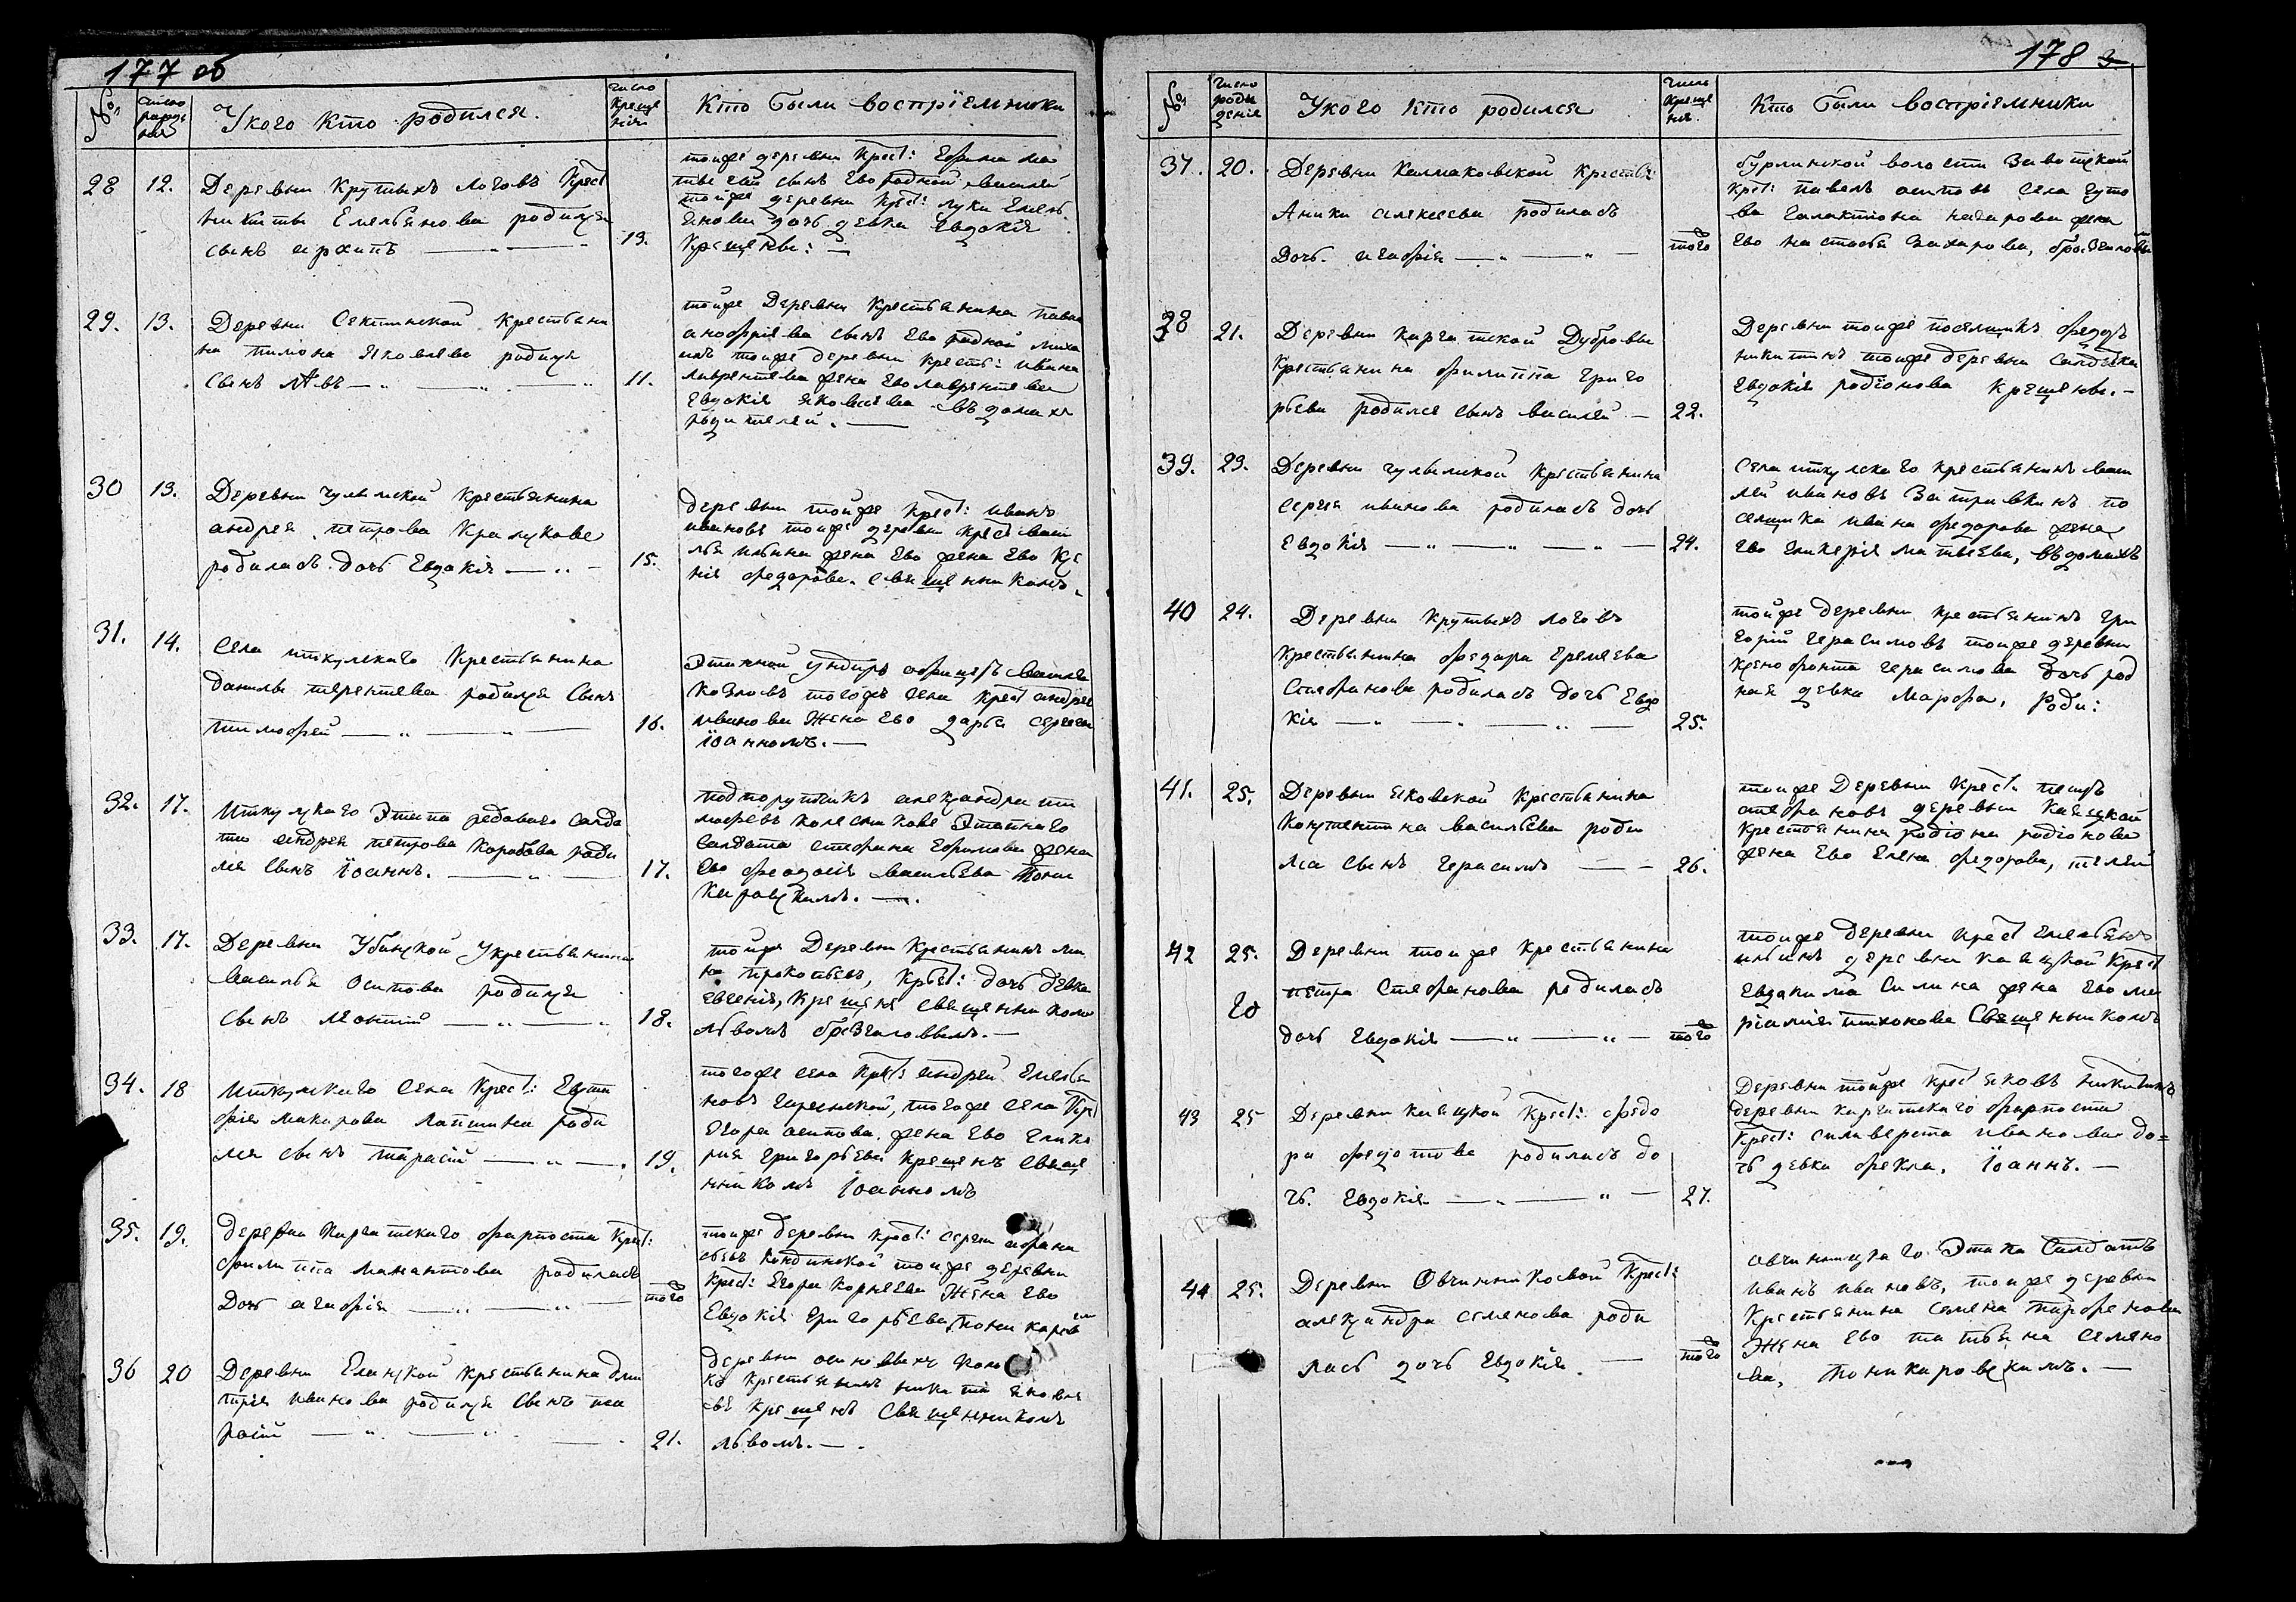 177 об
№
число рожде ния
У кого кто родился.
число креще нiя
Кто были воспрiемники
28
12.
Деревни Крутыхъ Логовъ Крест
никиты Емельянова родился
сынъ архипъ
13.
тойже деревни Крест: Ефима ма
твеева сынъ Ево родной василей
тойже деревни Крест: луки Емель
янова дочь девка Евдокiя
Крещены: —
29.
13.
Деревни Сектинской Крестьяни
на пимона яковлева родился
сынъ Левъ
11.
тойже Деревни Крестьянина павла
анофрiева сынъ Ево родной миха
илъ тойже деревни Кресть: ивана
лаврентева жена Ево лаврентева
Евдокiя яковлева въ домахъ
родителей. —
30
13.
Деревни Чулымской Крестьянина
андрея петрова
родилась дочь Евдокiя
15.
деревни тойже Крест: иванъ
ивановъ тойже деревни Крест васи
лья ильина жена Ево жена Ево Ксе
нiя федорова. священникомъ.
31.
14.
Села иткулскаго Крестьянина
данилы терентева родился Сынъ
тимофей
16.
Этапной ундиръ офицеръ василей
Козловъ тогожъ села Крест андрея
иванова Жена Ево дарья сергеева
iоанномъ. —
32.
17.
Иткулскаго Этапа редоваго салда
та андрея петрова Коробова роди
лся сынъ iоаннъ.
17.
подпорутчикъ александра ти
мофеевъ Колесниковъ Этапнаго
салдата стефана Ефимова жена
Ево феодосiя васильева пони
Каровскимъ. —
33.
17.
Деревни Убинской У крестьянина
Василья Осипова родился
сынъ леонтiй
18.
тойже Деревни Крестьянинъ ми
на прокопьевъ, Крест: дочь девка
евгенiя, Крещенъ священникомъ
львомъ бразголовымъ. —
34.
18
Иткулскаго Села Крест: Евти
фiя макарова Лапшина роди
лся сынъ тарасiй
19.
тогоже села Крест: андрей Емелья
новъ, тогоже села Крест
Егора осипова. жена Ево глике
рия григорьева Крещенъ свяще
нникомъ Iоанномъ
35.
19.
деревни Каргатскаго фарпоста Крест:
филиппа мамантова родилась
Дочь агафiя
того
тойже деревни крест: сергей афана
сьевъ Кондинской тойже деревни
Крест: Егора Корнеева Жена Ево
Евдокiя григорьева, поникаров
36
20
Деревни Еланской Крестьянина дми
трiя иванова родился сынъ та
расiй
21.
деревни осиновыхъ Коло
къ крестьянинъ никита яковле
въ Крещенъ священникомъ
львомъ. —
178
№
число рожденiя
У кого кто родился
число креще нiя
Кто были воспрiемники
37.
20.
Деревни Калмаковской Крестья:
Аники алексеева родилась
Дочь. агафiя
того
бурлинской волости Завотской
крест: павелъ осиповъ села чуло
ва галактiона назарова жена
Ево настасья Захарова, бразголовым
38
21.
Деревни Каргатской Дубровы
Крестьянина филиппа григо
рьева родился сынъ василей —
22.
Деревни тойже поселщикъ федоръ
никитинъ тойже деревни салдатка
Евдокiя родiонова крещены. —
39.
23.
Деревни чулымской Крестьянина
сергея иванова родилась дочь
Евдокiя
24.
Села иткулскаго крестьянинъ васи
лей ивановъ Затравкинъ по
селщика ивана федорова жена
ево гликерiя матвеева, въ домахъ
40
24.
Деревни Крутыхъ логовъ
Крестьянина федора еремеева
Стефанова родилась дочь Евдо
кiя
25.
тойже деревни крестьянинъ гри
горiй герасимовъ тойже деревни
ксенофонта герасимова дочь род
ная девка марфа, роди:
41.
25.
Деревни яковской Крестьянина
Констентина васильева роди
лса сынъ герасимъ
26.
тойже Деревни Крест: петръ
стефановъ деревни Каяцкой
Крестьянина родiона родiонова
жена Ево Елена федорова, телей
42
25.
Деревни тойже Крестьянина
петра Стефанова родилась
дочь Евдокiя
того
тойже деревни крест емельянъ
ильинъ деревни Каяцкой Крест
Евдакима Силина жена Ево ма
рiамiя тихонова Священникомъ
43
25
Деревни Каяцкой Крест: федо
ра федотова родилась до
чь. Евдокiя
27.
деревни тойже крест яковъ никитинъ
деревни каргатскаго фарпоста
Крест: силиверста иванова до=
чь девка фекла, iоаннъ. —
44
25.
Деревни Овчинниковой Крест:
александра семенова роди
лась дочь Евдокiя. —
того
овчинницкаго Этапа Салдатъ
иванъ ивановъ, тойже деревни
крестьянина семена парфенова
Жена Ево татьяна семено
ва, поникаровскимъ. —